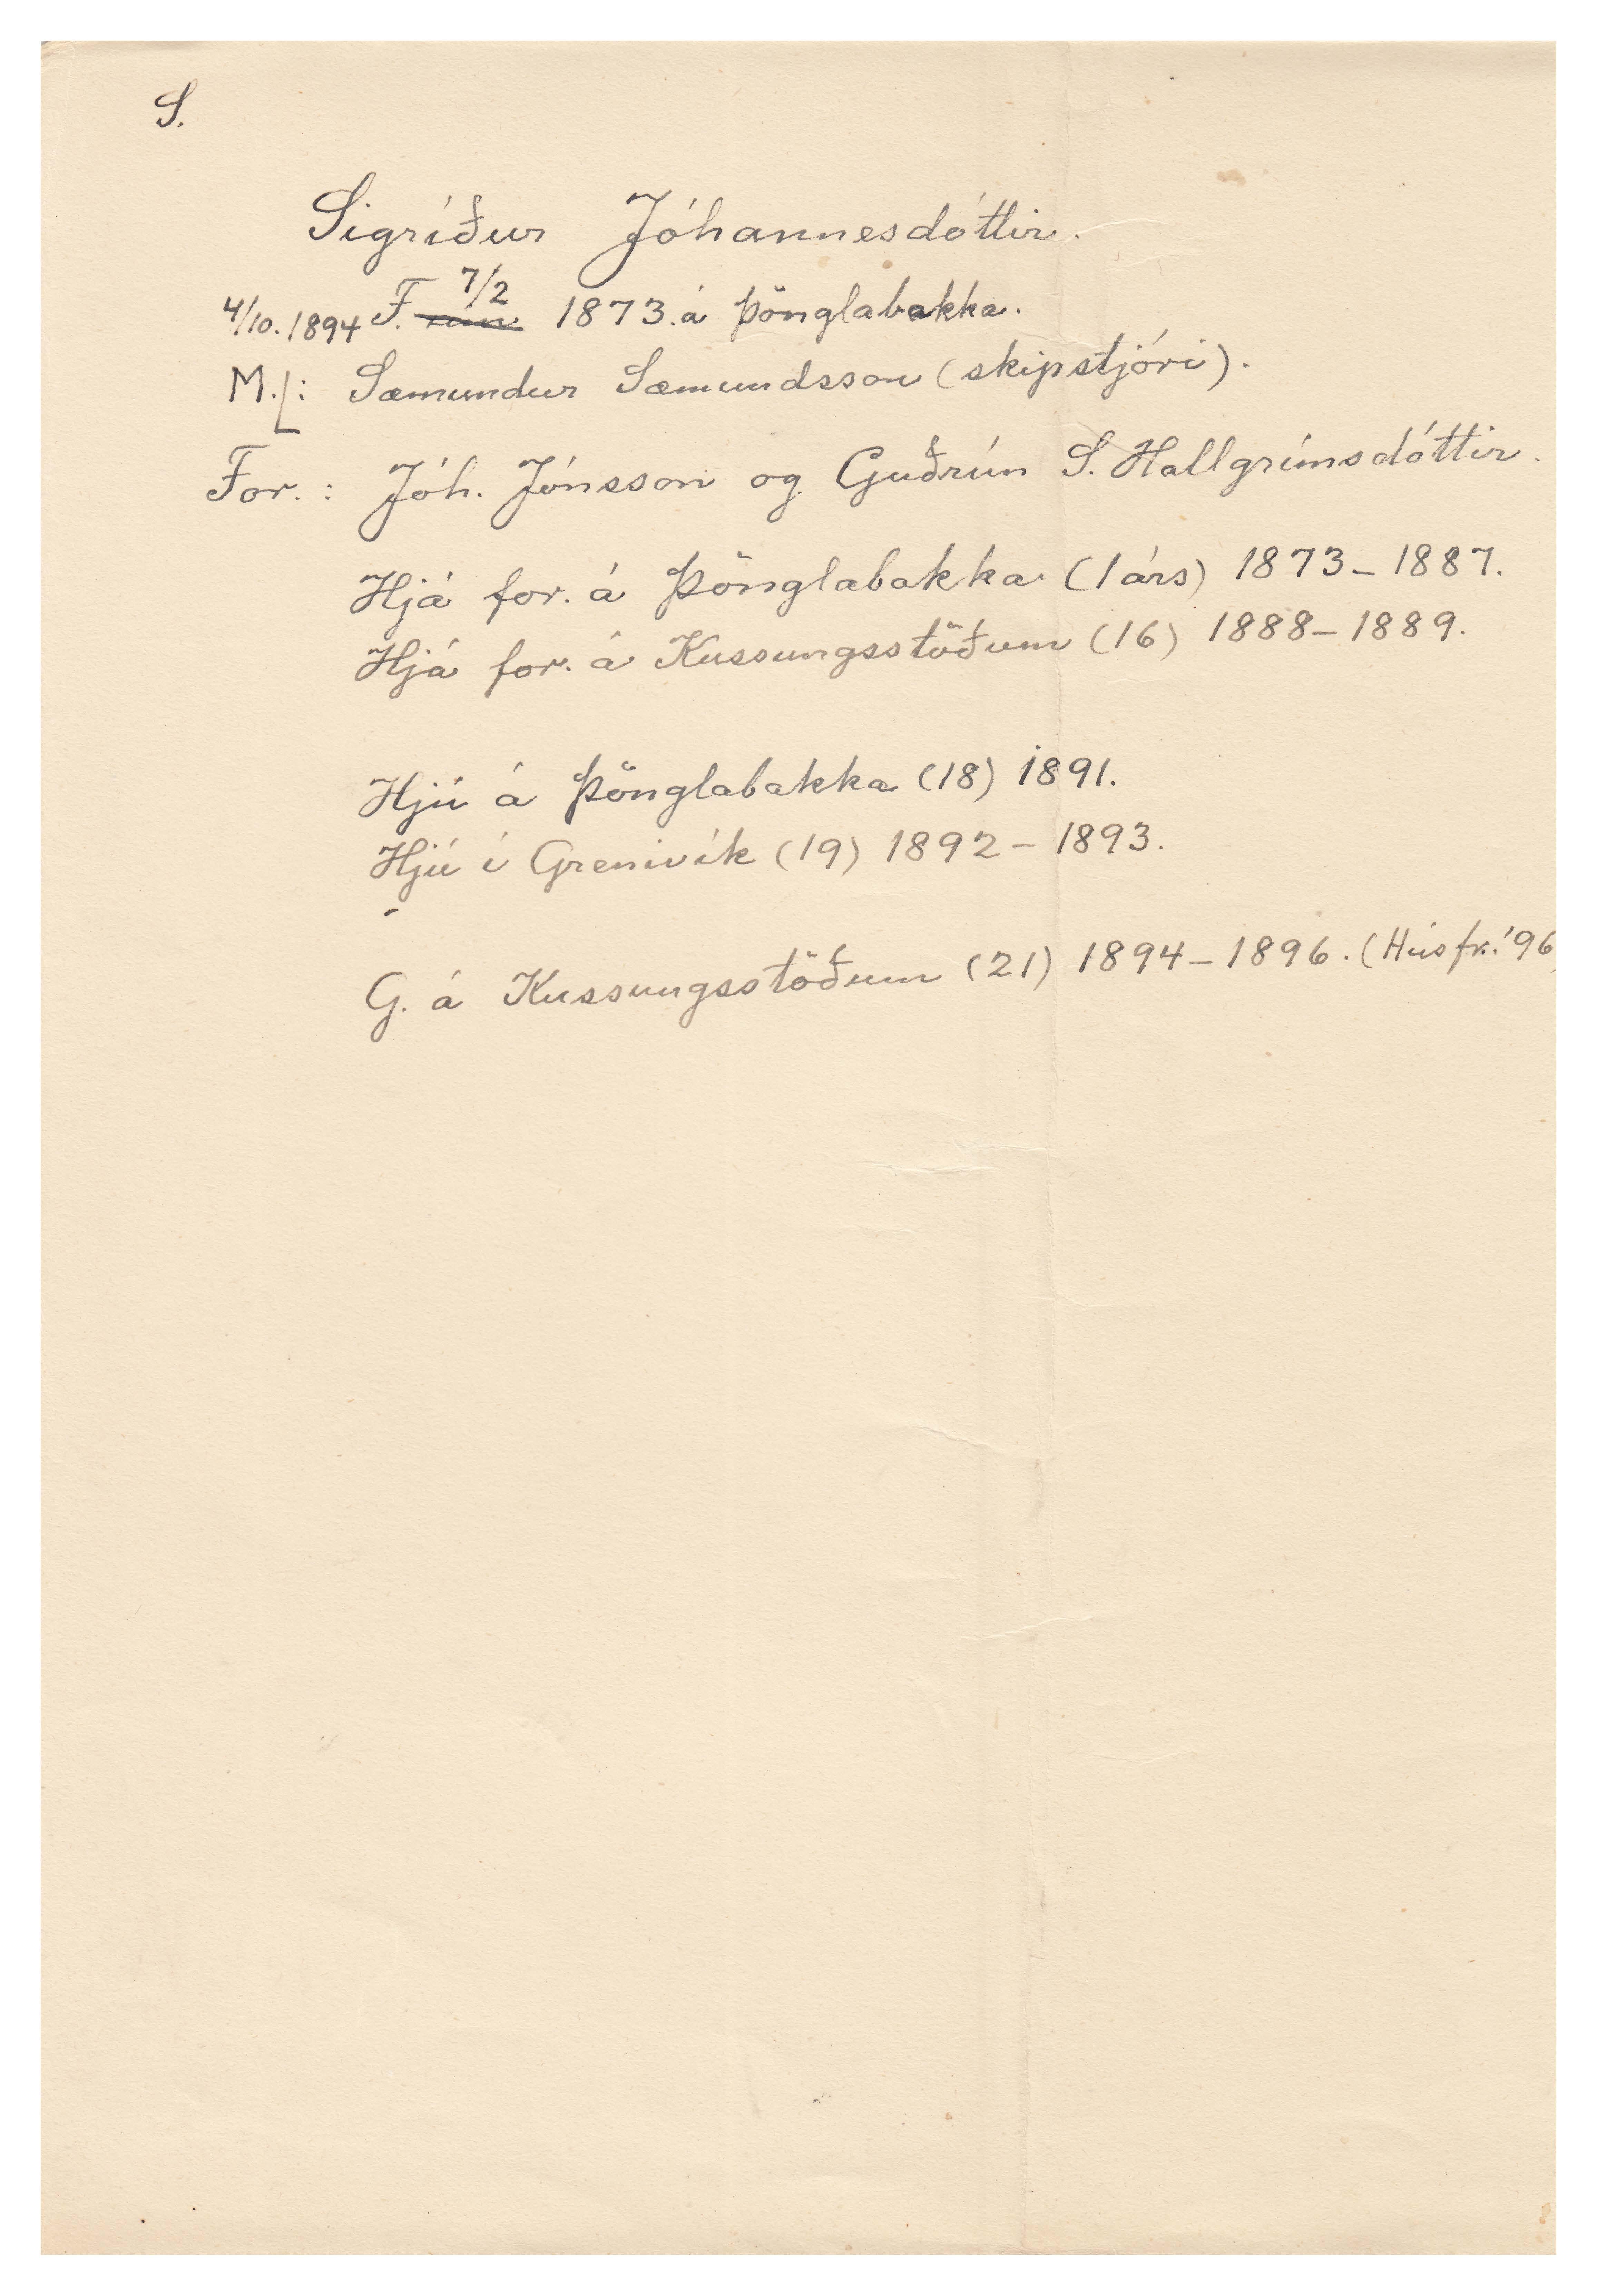 S.
Sigríður Jóhannesdóttir.
4/10.1894 F. 7/2 1873. á Þönglabakka.
M.: Sæmundur Sæmundsson (skipstjóri).
For.: Jóh. Jónsson og Guðrún S. Hallgrímsdóttir.
Hjá for. á Þönglabakka (1 árs) 1873 - 1887.
Hjá for. á Kussungsstöðum (16) 1888 - 1889.
Hjú á Þönglabakka (18) 1891.
Hjú í Grenivík (19) 1892 - 1893.
G. á Kussungsstöðum (21) 1894 - 1896. (Húsfr. '96